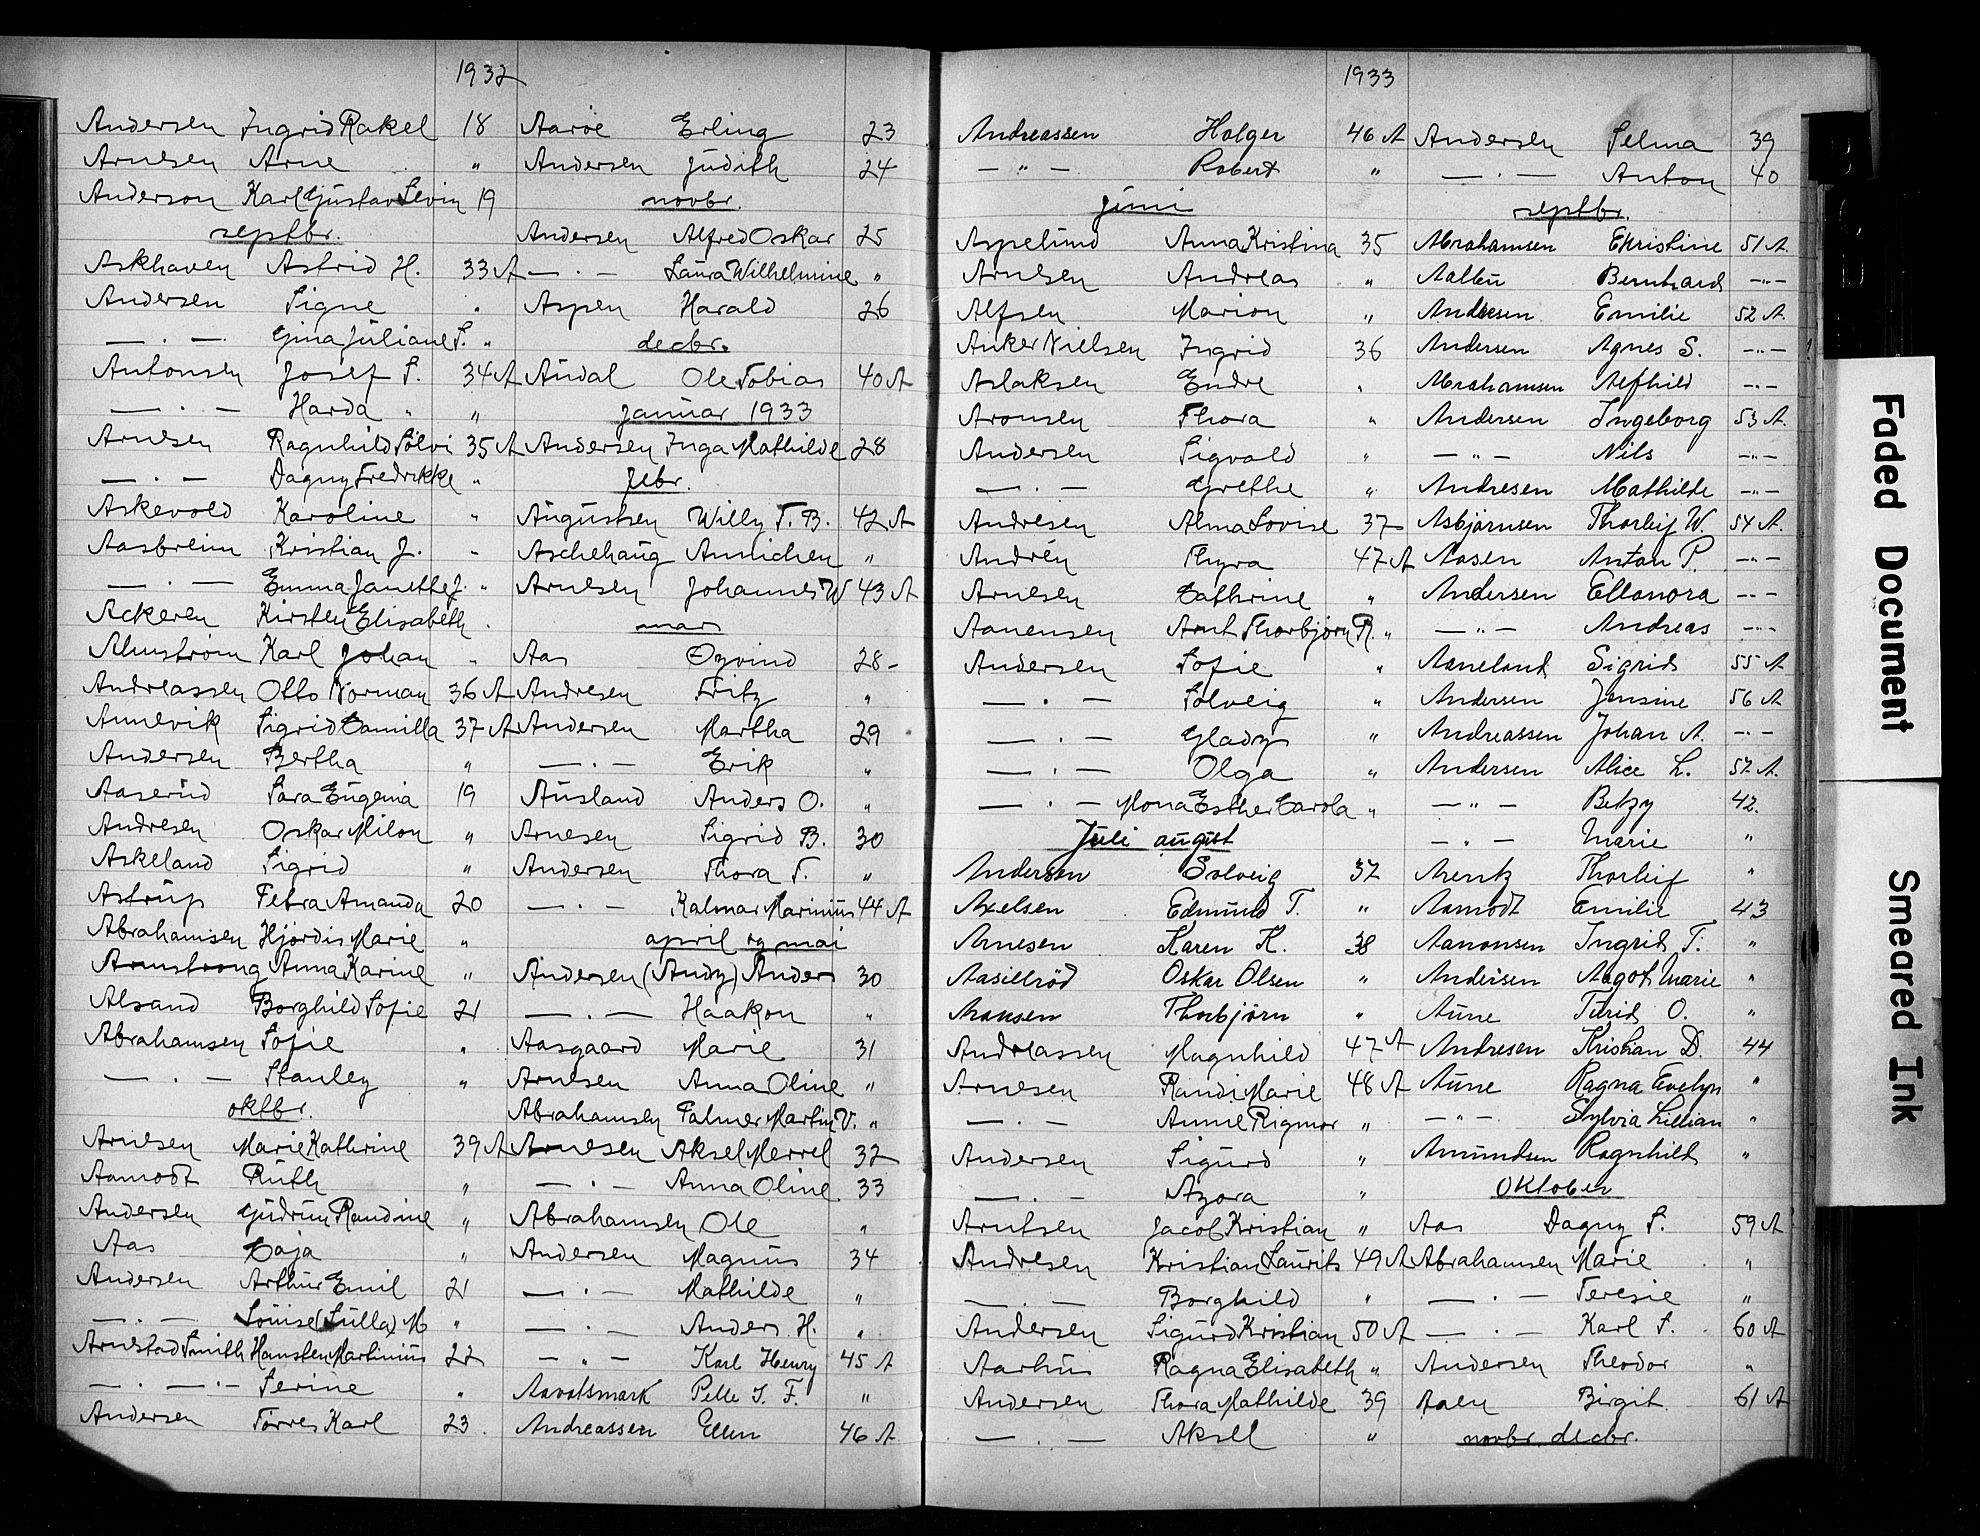 1932
Andersen Ingrid Rakel 18
Arnesen Arne "
Anderson Karl Gustav Levin 19
septbr.
Askhaven Astrid H. 33 A
Andersen Signe "
— . — Gina Juliane S. "
Antonsen Josef S. 34 A
— . — Harda " "
Arnesen Ragnhild Sölvi 35 A
— . — Dagny Fredrikke "
Askevold Karoline "
Aasbreim Kristian J. "
— . — Emma Janette J. "
Ackeren Kirsten Elisabeth "
Almström Karl Johan "
Andreassen Otto Norman 36 A
Annevik Sigrid Camilla 37 A
Andersen Bertha "
Aaserüd Sara Eugenia 19
Andresen Oskar Milon "
Askeland Sigrid "
Astrüp Febra Amanda 20
Abrahamsen Hjördis Marie "
Armstrong Anna Karine "
Alsand Borghild Sofie 21
Abrahamsen Sofie "
— . — Stanley "
oktbr.
Arnesen Marie Kathrine 39 A
Aamodt Rüth "
Andersen Güdrün Randine "
Aas Caja "
Andersen Arthür Emil 21
— . — Loüise (Lülla) M "
Arnestad Smith Hansten Martiniüs 22
— . — . — Serine "
Andersen Törres Karl 23
Aaröe Erling 23
Andersen Jüdith 24
novbr.
Andersen Alfred Oskar 25
— . — Laüra Wilhelmine "
Aspen Harald 26
decbr.
Aüdal Ole Tobias 40 A
Janüar 1933
Andersen Inga Mathilde 28
febr.
Aügüstsen Willy T. B. 42 A
Aschehaüg Annichen "
Arnesen Johannes W 43 A
mars
Aas Öyvind 28
Andresen Fritz "
Andersen Martha 29
— . — Erik "
Aüsland Anders O. "
Arnesen Sigrid B. 30
Andersen Thora T. "
— . — Kalmar Mariniüs 44 A
april og mai
Andersen (Andy) Anders 30
— . — Haakon "
Aasgaard Marie 31
Arnesen Anna Oline "
Abrahamsen Palmer Martin V. "
Arnesen Aksel Merrel 32
— . — Anna Oline 33
Abrahamsen Ole "
Andersen Magnüs 34
— . — Mathilde "
— . — Anders H. "
— " — Karl Henry 45 A
Aavatsmark Pelle S. F. "
Andreassen Ellen 46 A
1933
Andreassen Holger 46 A
— " — Robert "
jüni
Aspelünd Anna Kristina 35
Arnesen Andreas "
Alfsen Marion "
Anker Nielsen Ingrid 36
Aslaksen Endre "
Aronsen Thora "
Andersen Sigvald "
— . — Grethe "
Andresen Alma Lovise 37
Andrén Thyra 47 A
Arnesen Cathrine "
Aanensen Arnt Thorbjörn R. "
Andersen Sofie "
— . — Solveig "
— . — Gladys "
— . — Olga "
— . — Mona Esther Carola "
Juli august
Andersen Solveig 37
Axelsen Edmund T. "
Arnesen Karen K. 38
Aasillröd Oskar Olsen "
Aronsen Thorbjörn "
Andreassen Magnhild 47 A
Arnesen Randi Marie 48 A
— . — Anne Rigmor "
Andersen Sigürd "
— . — Azora "
Arntsen Jacob Kristian "
Andresen Kristian Laurits 49 A
— . — Borghild "
Andersen Sigürd Kristian 50 A
Aarhüs Ragna Elisabeth "
Andersen Thora Mathilde 39
— . — Aksel "
Andersen Selma 39
— . — Anton 40
septbr.
Abrahamsen Christine 51 A.
Aalbu Bernhard —"—
Andresen Emilie 52 A.
Andersen Agnes S. —"—
Abrahamsen Alfhild —"—
Andersen Ingeborg 53 A.
— " — Nils —"—
Andresen Mathilde —"—
Asbjørnsen Thorleif W. 54 A.
Aasen Anton P. —"—
Andersen Ellonora —"—
— " — Andreas —"—
Aaneland Sigrid 55 A
Andersen Jensine 56 A
Andreassen Johan A. —"—
Andersen Alice L. 57 A.
— " — Betzy 42.
— " — Marie "
Arentz Thorleif "
Aamodt Emilie 43
Aanonsen Ingrid T. "
Andersen Aagot Marie "
Aüne Turid O. "
Andresen Kristian D. 44
Aüne Ragna Evelyn "
— " — Sylvia Lillian "
Amundsen Ragnhild "
Oktober
Aas Dagny S. 59 A
Abrahamsen Marie "
— . — Teresie "
— . — Karl S. 60 A
Andersen Theodor "
Aalen Birgit 61 A
novbr. decbr.
Faded Document
Smeared Ink